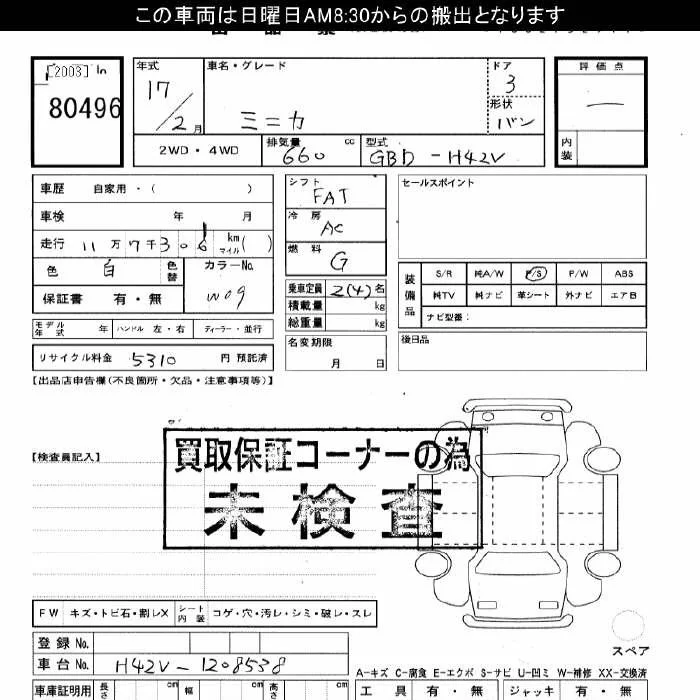 この車両は日曜日AM8:30からの搬出となります
[2003] In
80496
年式
17/2月
車名・グレード
ミニカ
ドア
3
形状
バン
評価点
―
内装
2WD・4WD
排気量 660 cc
型式 GBD-H42V
車歴 自家用・( )
車検 年 月
走行 11万7千306 km マイル( )
色 白 色替
カラーNo. W09
保証書 有・無
モデル年式 年 ハンドル 左・右 ディーラー・並行
リサイクル料金 5310 円 預託済
シフト FAT
冷房 AC
燃料 G
乗車定員 2(4)名
積載量 kg
総重量 kg
名変期限
月 日
セールスポイント
装備品
S/R 純A/W P/S P/W ABS
純TV 純ナビ 革シート 外ナビ エアB
ナビ型番:
後日品
【出品店申告欄(不良箇所・欠品・注意事項等)】
【検査員記入】
買取保証コーナーの為
未検査
FW キズ・トビ石・割レX シート内装 コゲ・穴・汚レ・シミ・破レ・スレ
スペア
登録No.
車台No. H42V-1208538
A-キズ C-腐食 E-エクボ S-サビ U-凹ミ W-補修 XX-交換済
車庫証明用 長さ cm 幅 cm 高さ cm
工具 有・無 ジャッキ 有・無